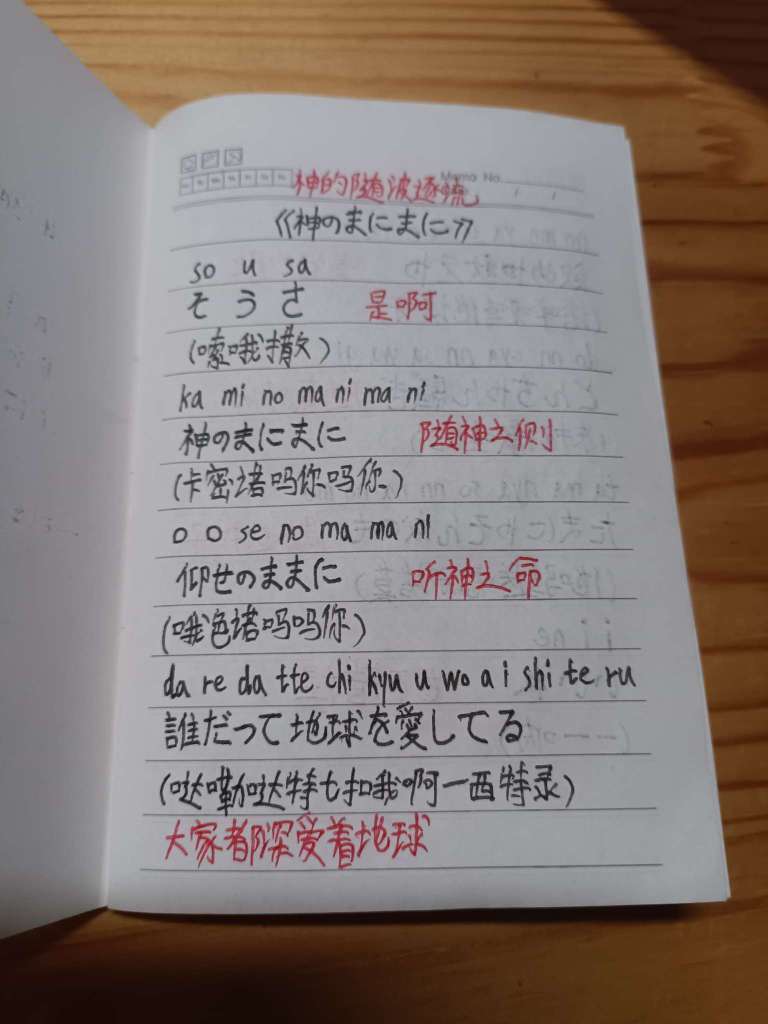 Memo No.
神的随波逐流
《神のまにまに》
so u sa
そうさ 是啊
(嗦哦撒)
ka mi no ma ni ma ni
神のまにまに 随神之侧
(卡密诺吗你吗你)
o o se no ma ma ni
仰せのままに 听神之命
(哦色诺吗吗你)
da re da tte chi kyu u wo a i shi te ru
誰だって地球を愛してる
(哒嘞哒特七扣哦啊一西特录)
大家都深爱着地球